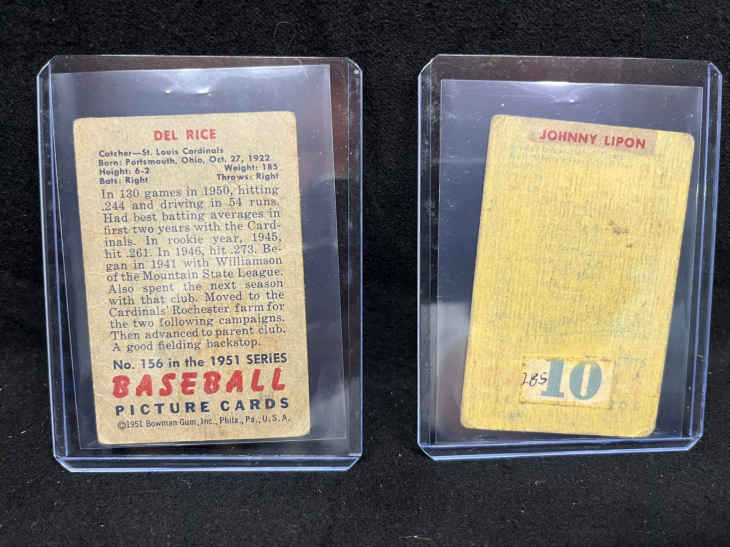 DEL RICE
Catcher—St. Louis Cardinals
Born: Portsmouth, Ohio, Oct. 27, 1922
Height: 6-2 Weight: 185
Bats: Right Throws: Right
In 130 games in 1950, hitting
.244 and driving in 54 runs.
Had best batting averages in
first two years with the Card-
inals. In rookie year, 1945,
hit .261. In 1946, hit .273. Be-
gan in 1941 with Williamson
of the Mountain State League.
Also spent the next season
with that club. Moved to the
Cardinals' Rochester farm for
the two following campaigns.
Then advanced to parent club.
A good fielding backstop.
No. 156 in the 1951 SERIES
BASEBALL
PICTURE CARDS
©1951 Bowman Gum, Inc., Phila., Pa., U.S.A.
JOHNNY LIPON
285
10